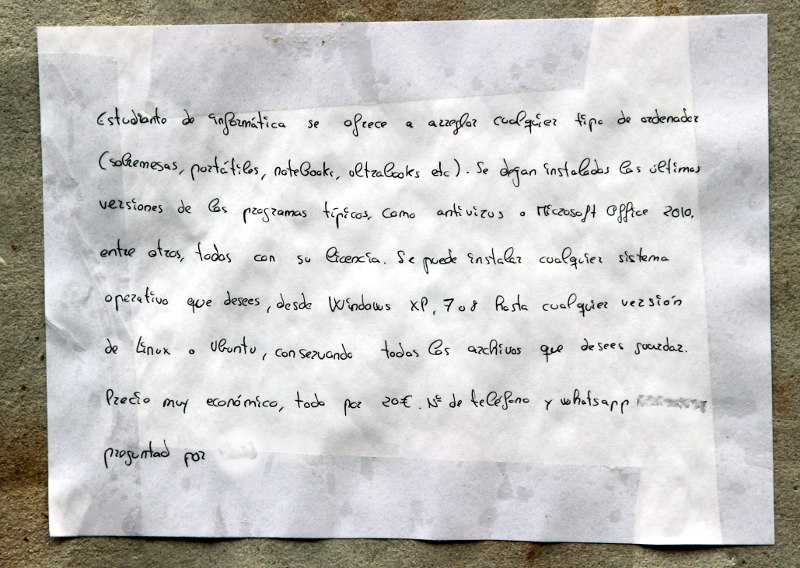 Estudiante de informática se ofrece a arreglar cualquier tipo de ordenador
(sobremesas, portátiles, notebooks, ultrabooks etc). Se dejan instalados las últimas
versiones de los programas típicos, como antivirus o Microsoft Office 2010,
entre otros, todos con su licencia. Se puede instalar cualquier sistema
operativo que desees, desde Windows XP, 7 o 8 hasta cualquier versión
de Linux o Ubuntu, conservando todos los archivos que desees guardar.
Precio muy económico, todo por 20€. Nº de teléfono y whatsapp
preguntad por